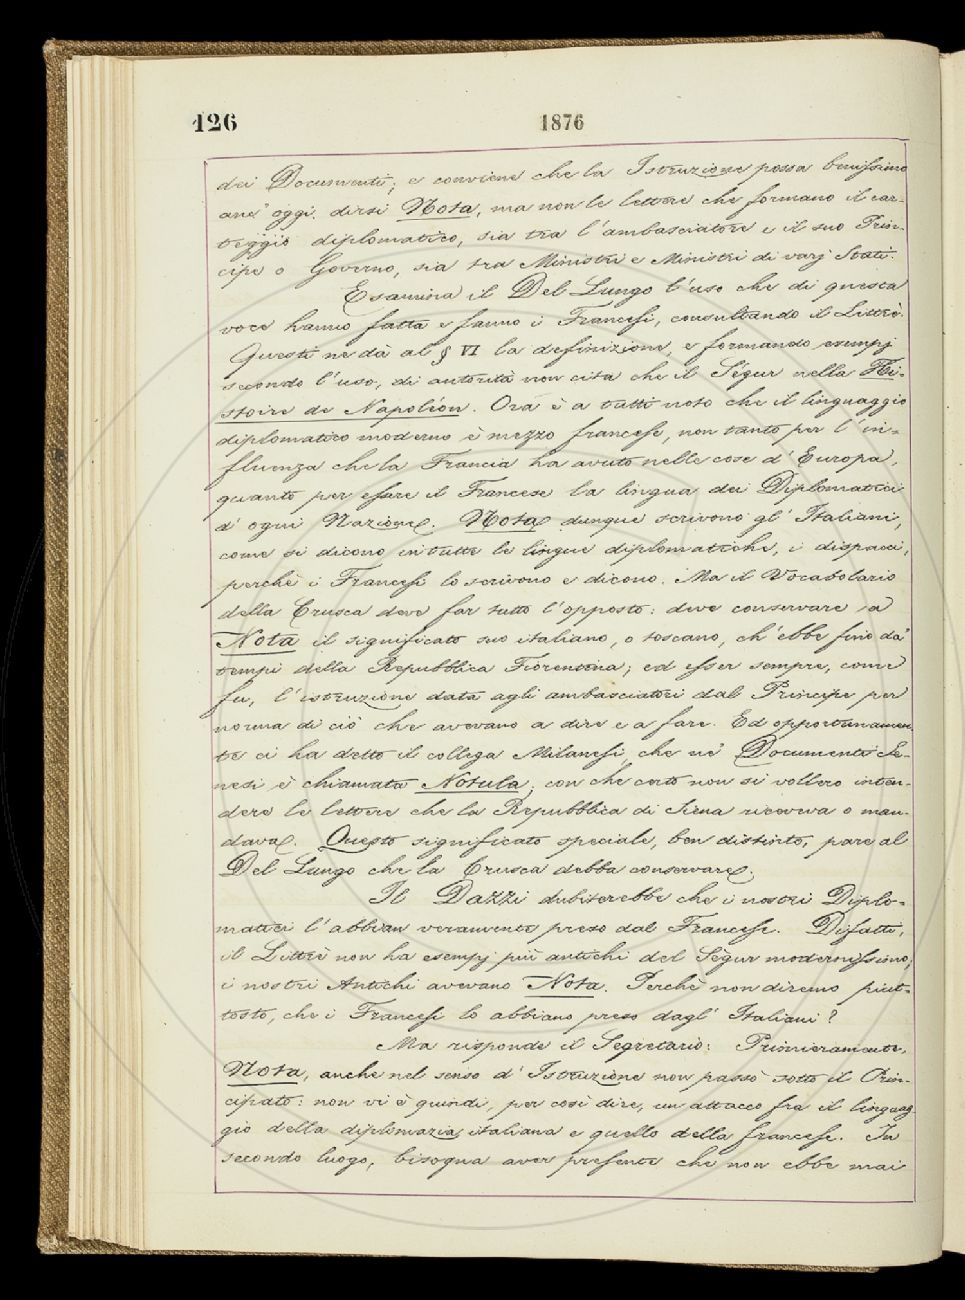 126
1876
dei Documenti; e conviene che la Istruzione possa benissimo
anc' oggi dirsi Nota, ma non le lettere che formano il car-
teggio diplomatico, sia tra l'ambasciatore e il suo Prin-
cipe o Governo, sia tra Ministri e Ministri di varj Stati.
Esamina il Del Lungo l'uso che di questa
voce hanno fatto e fanno i Francesi, consultando il Littrè.
Questi ne dà al § VI la definizione, e formando esempj
secondo l'uso, di autorità non cita che il Ségur nella Hi-
stoire de Napoléon. Ora è a tutti noto che il linguaggio
diplomatico moderno è mezzo francese, non tanto per l'in-
fluenza che la Francia ha avuto nelle cose d'Europa,
quanto per essere il Francese la lingua dei Diplomatici
d'ogni Nazione. Nota dunque scrivono gl'Italiani,
come si dicono in tutte le lingue diplomatiche, i dispacci,
perchè i Francesi lo scrivono e dicono. Ma il Vocabolario
della Crusca deve far tutto l'opposto: deve conservare a
Nota il significato suo italiano, o toscano, ch'ebbe fino da'
tempi della Repubblica Fiorentina; ed esser sempre, come
fu, l'istruzione data agli ambasciatori dal Principe per
norma di ciò che avevano a dire e a fare. Ed opportunamen-
te ci ha detto il collega Milanesi, che ne' Documenti Se-
nesi è chiamata Notula; con che certo non si vollero inten-
dere le lettere che la Repubblica di Siena riceveva o man-
dava. Questo significato speciale, ben distinto, pare al
Del Lungo che la Crusca debba conservare.
Il Dazzi dubiterebbe che i nostri Diplo-
matici l'abbian veramente preso dal Francese. Difatti,
il Littrè non ha esempj più antichi del Ségur modernissimo;
i nostri Antichi avevano Nota. Perchè non diremo piut-
tosto, che i Francesi lo abbiano preso dagl'Italiani?
Ma risponde il Segretario: Primieramente,
Nota, anche nel senso d'Istruzione non passò sotto il Prin-
cipato: non vi è quindi, per così dire, un attacco fra il linguag-
gio della diplomazia italiana e quello della francese. In
secondo luogo, bisogna aver presente che non ebbe mai